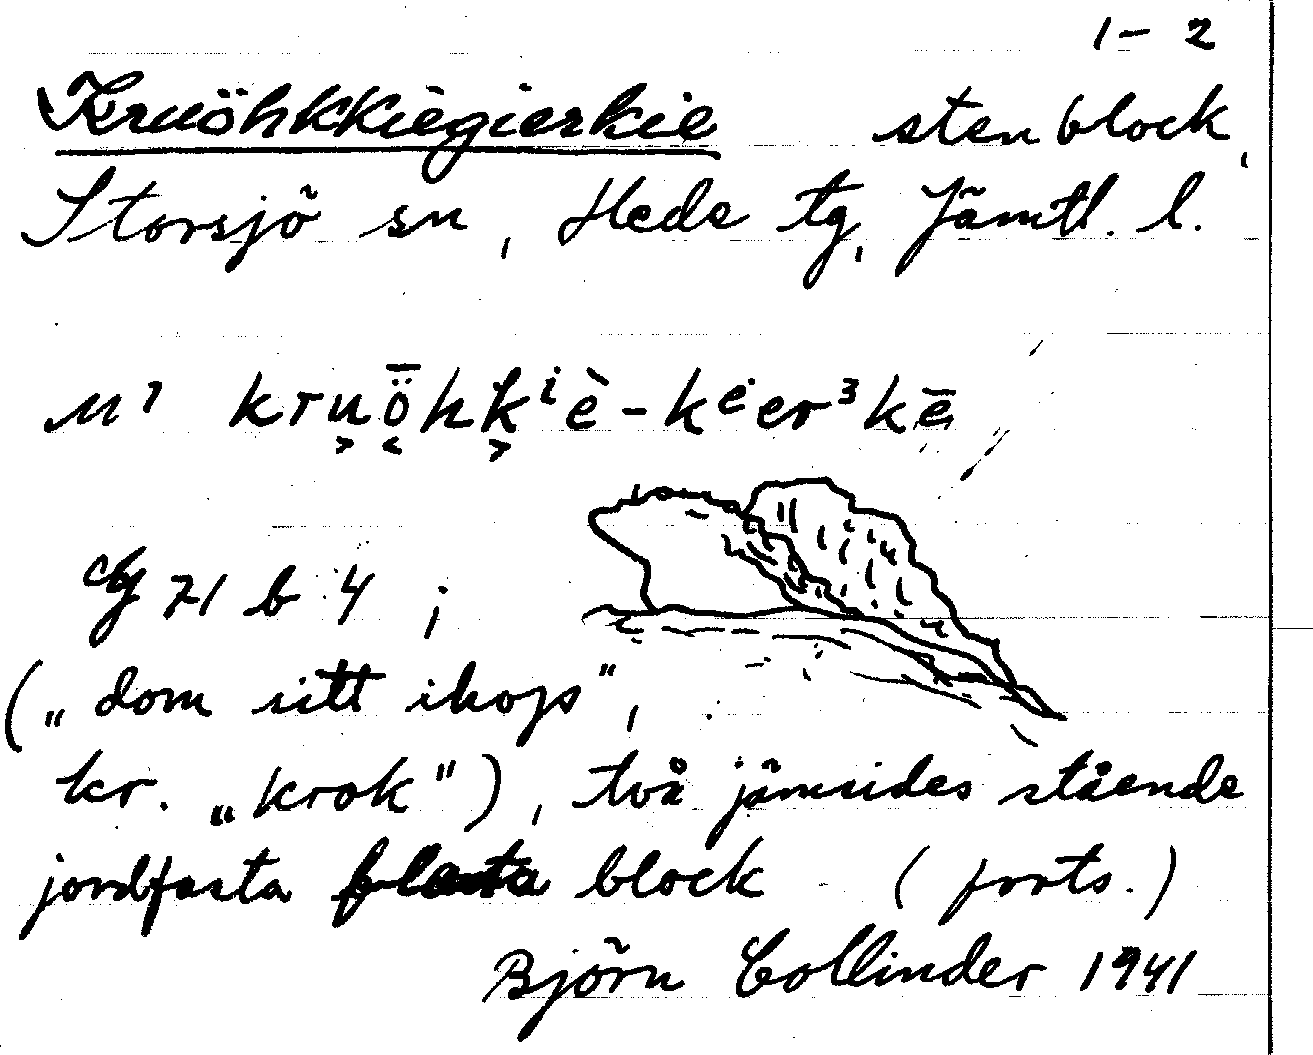 1-2
Kruöhkkiegierkie stenblock,
Storsjö sn, Hede tg, Jämtl. l.
kruȫhkⁱè-kᵉerᵌkē
71 b 4 ;
(„dom sitt ihops",
kr. „krok"), två jämsides stående
jordfasta block (forts.)
Björn Collinder 1941